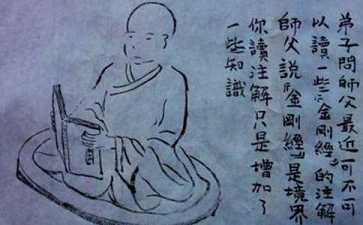 弟子問師父最近可不可
以讀一些《金剛經》的注解
師父說《金剛經》是境界
你讀注解只是增加了
一些知識